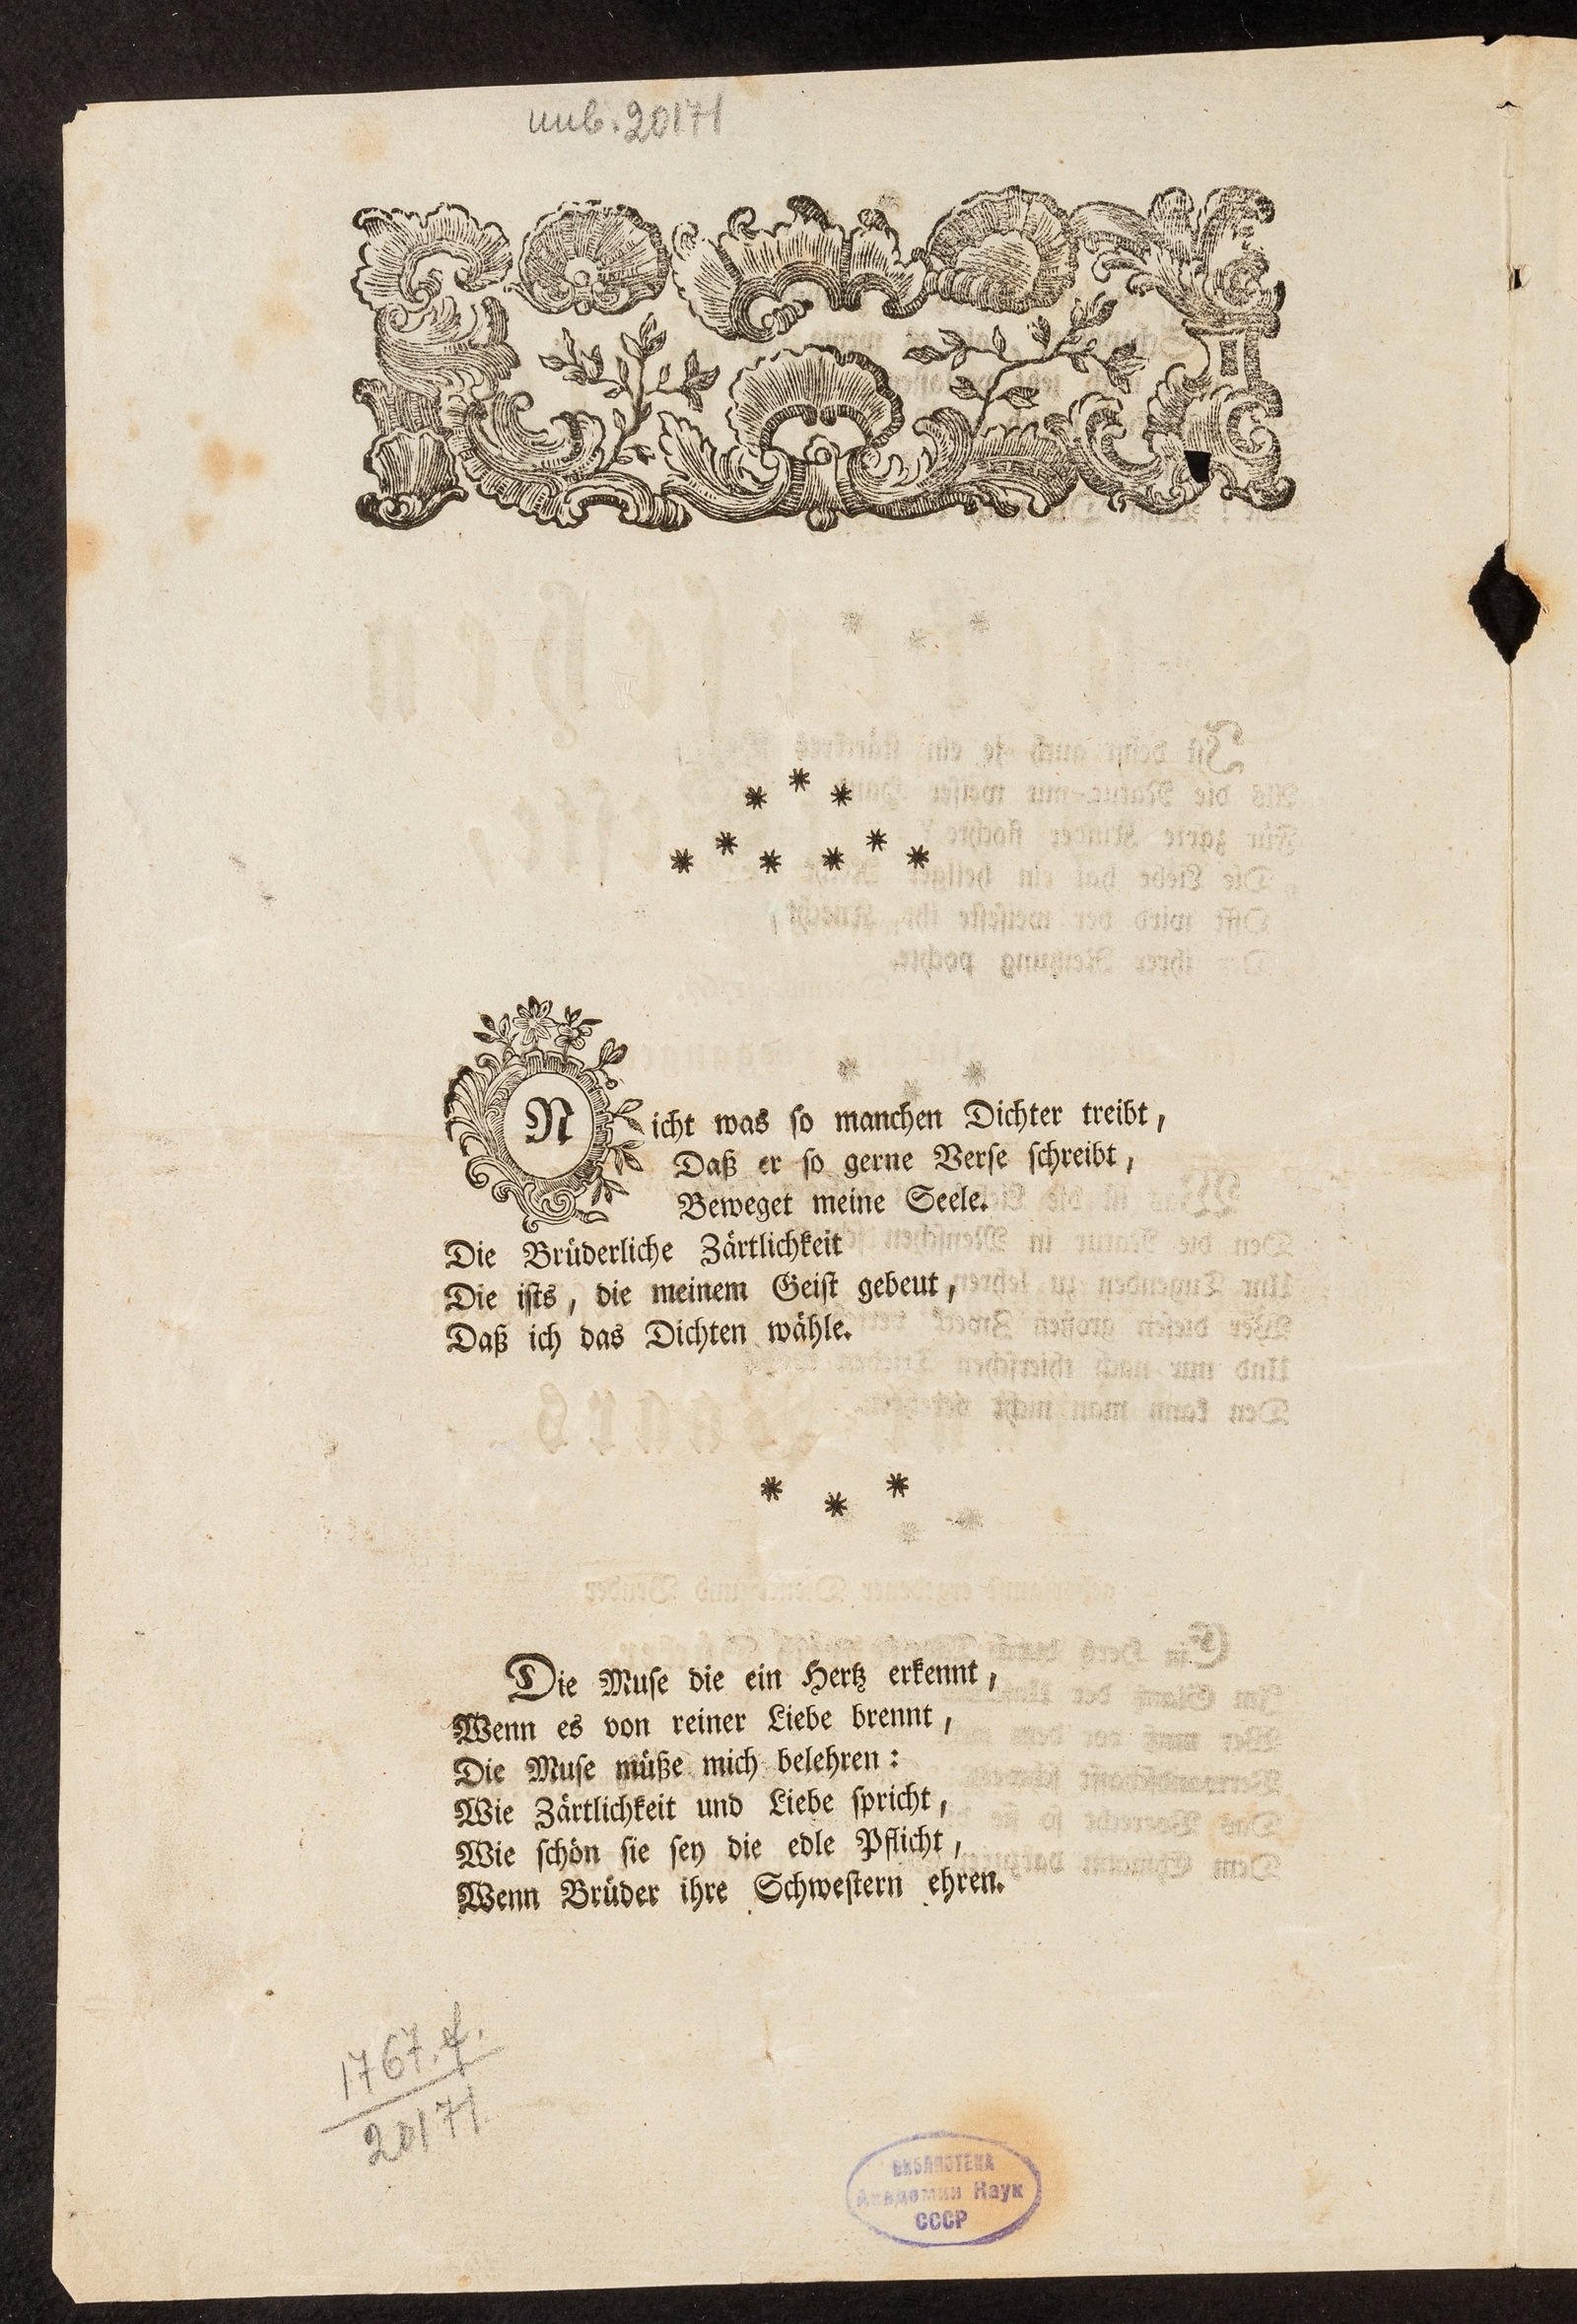 инв. 20171
Nicht was so manchen Dichter treibt,
Daß er so gerne Verse schreibt,
Beweget meine Seele.
Die Brüderliche Zärtlichkeit
Die ists, die meinem Geist gebeut,
Daß ich das Dichten wähle.
Die Muse die ein Hertz erkennt,
Wenn es von reiner Liebe brennt,
Die Muse müße mich belehren:
Wie Zärtlichkeit und Liebe spricht,
Wie schön sie sey die edle Pflicht,
Wenn Brüder ihre Schwestern ehren.
1767.f.
20171
БИБЛИОТЕКА
Академии Наук
СССР